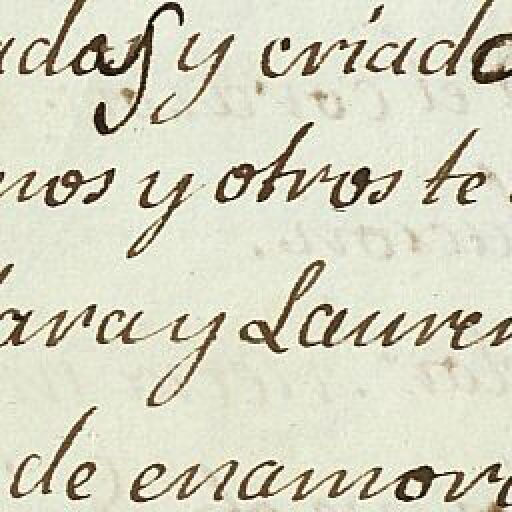 adas y criado
nos y otros te
lara y Lauren
de enamora